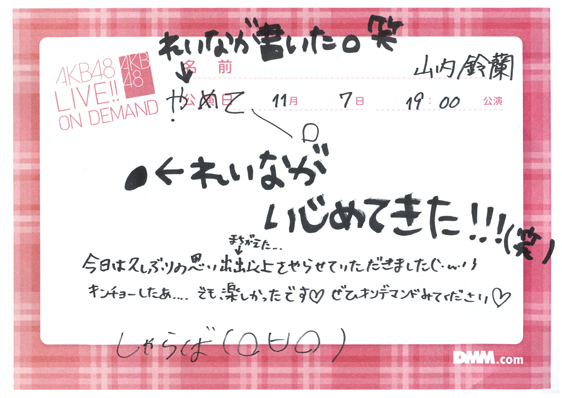 れいなが書いた。笑
AKB48
LIVE!!
ON DEMAND
AKB
48
名前
山内鈴蘭
やめて
公演日 11月 7日 19:00 公演
←れいなが
いじめてきた!!!(笑)
まちがえた…
今日は久しぶりの思い出出以上をやらせていただきました(´・ω・`)
キンチョーしたあ…. でも、楽しかったです♡ ぜひオンデマンドみてください♡
しゃらば(O∀O)
DMM.com